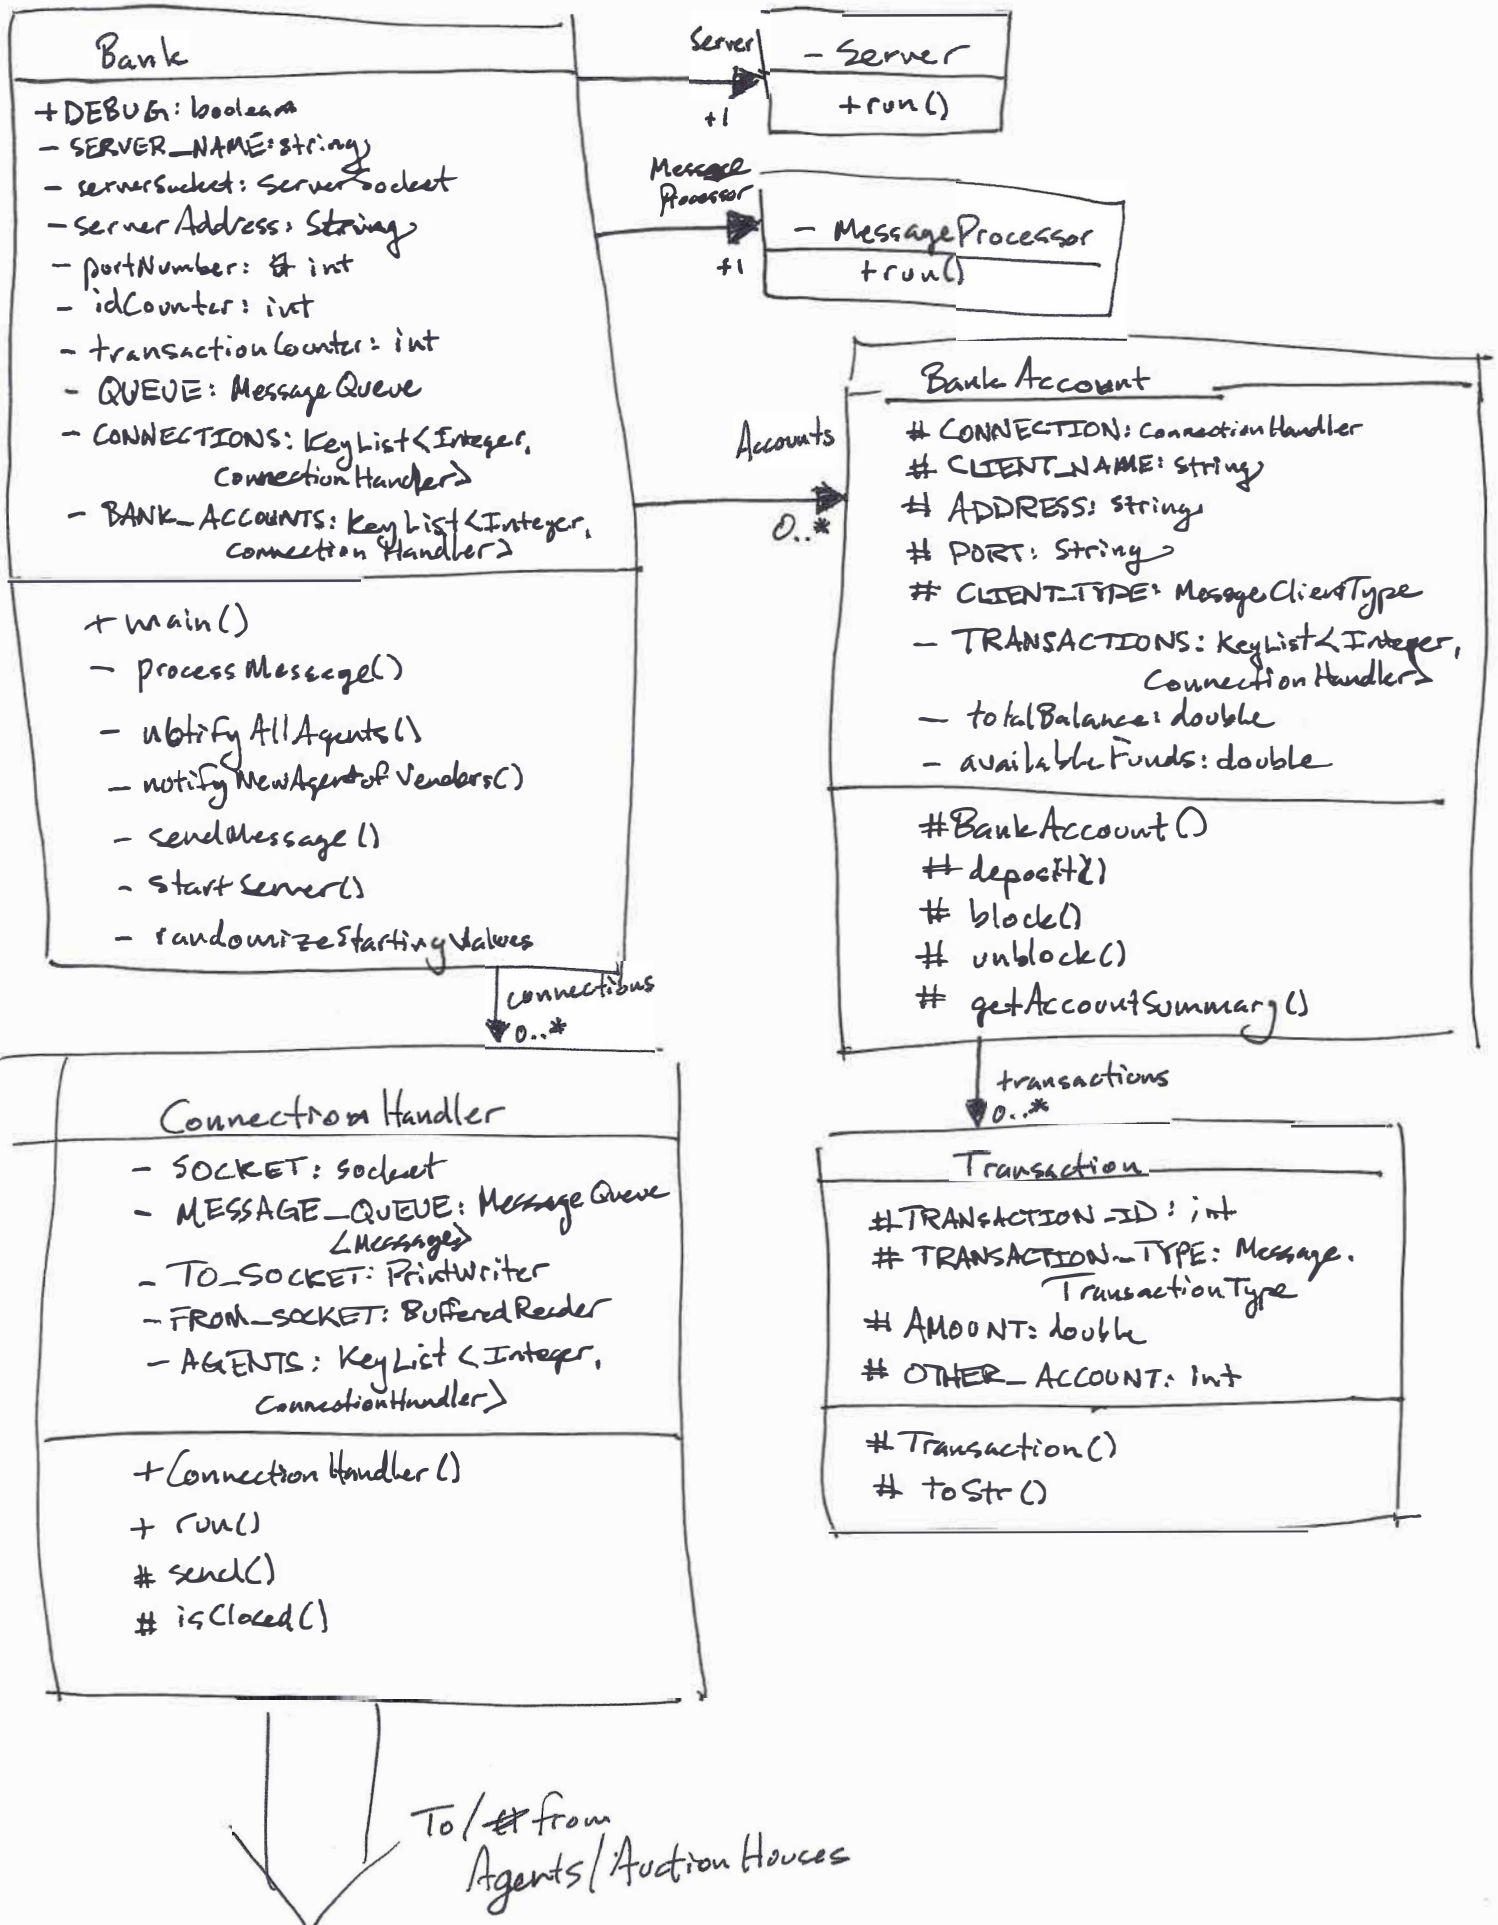 Bank
+ DEBUG: boolean
- SERVER_NAME: string
- serverSocket: ServerSocket
- serverAddress: String
- portNumber: int
- idCounter: int
- transactionCounter: int
- QUEUE: MessageQueue
- CONNECTIONS: KeyList<Integer,
ConnectionHandler>
- BANK_ACCOUNTS: KeyList<Integer,
Connection Handler>
+ main()
- processMessage()
- notifyAllAgents()
- notifyNewAgentofVendors()
- sendMessage()
- startServer()
- randomizeStartingValues
Server
+1
- Server
+run()
Message
Processor
+1
- MessageProcessor
+run()
Accounts
0..*
Bank Account
# CONNECTION: ConnectionHandler
# CLIENT_NAME: string
# ADDRESS: string
# PORT: String
# CLIENT_TYPE: MessageClientType
- TRANSACTIONS: KeyList<Integer,
ConnectionHandler>
- totalBalance: double
- availableFunds: double
#BankAccount()
# deposit()
# block()
# unblock()
# getAccountSummary()
connections
0..*
Connection Handler
- SOCKET: socket
- MESSAGE_QUEUE: MessageQueue
<Message>
- TO_SOCKET: PrintWriter
- FROM_SOCKET: BufferedReader
- AGENTS: KeyList<Integer,
ConnectionHandler>
+ConnectionHandler()
+ run()
# send()
# isClosed()
transactions
0..*
Transaction
#TRANSACTION_ID: int
# TRANSACTION_TYPE: Message.
TransactionType
# AMOUNT: double
# OTHER_ACCOUNT: int
#Transaction()
# toStr()
To/from
Agents/Auction Houses